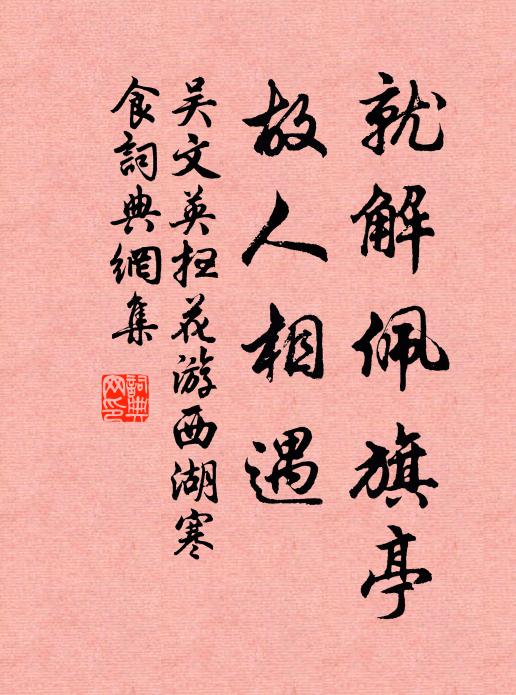 就解佩旗亭
故人相遇
吴文英扫花游西湖寒
食詞典網集
詞典
网印